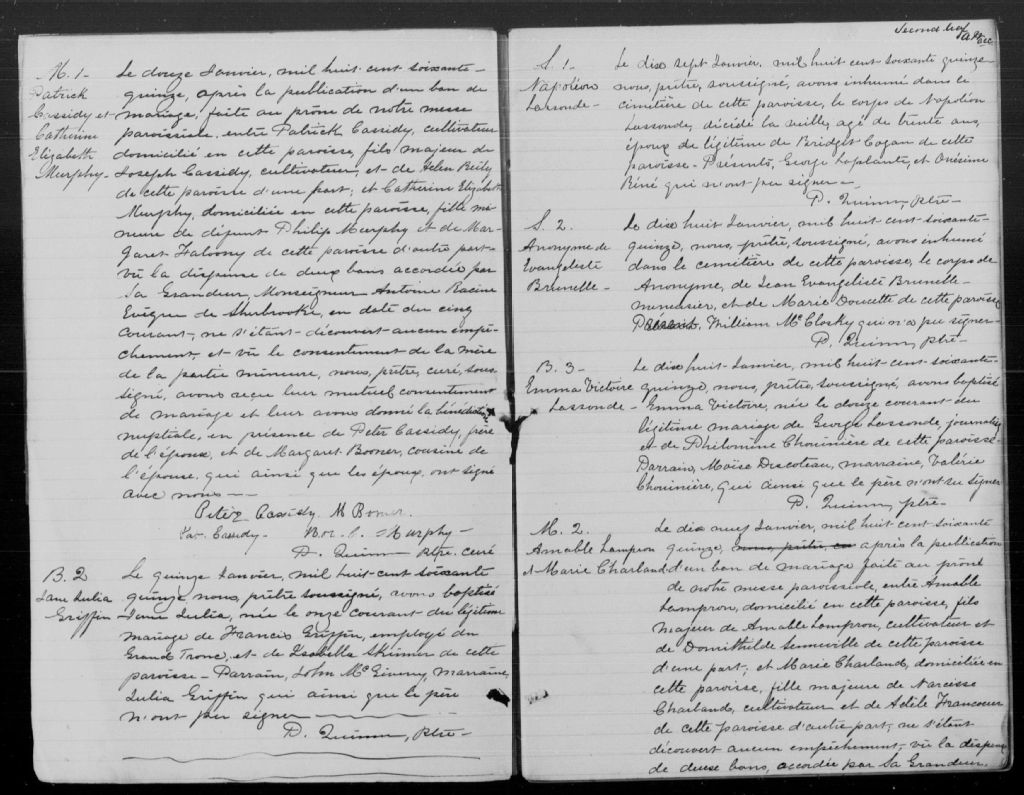 M. 1-
Patrick
Cassidy et
Catherine
Elizabeth
Murphy-
Le douze Janvier, mil huit cent soixante-
quinze, après la publication d'un ban de
mariage, faite au prône de notre messe
paroissiale, entre Patrick Cassidy, cultivateur
domicilié en cette paroisse, fils majeur de
Joseph Cassidy, cultivateur, et de Helen Reily
de cette paroisse d'une part; et Catherine Elizabeth
Murphy, domiciliée en cette paroisse, fille mi-
neure de défunt Philip Murphy et de Mar-
garet de cette paroisse d'autre part-
vû la dispense de deux bans accordée par
Sa Grandeur, Monseigneur Antoine Racine
Evêque de Sherbrooke, en date du cinq
courant, ne s'étant découvert aucun empê-
chement, et vû le consentement de la mère
de la partie mineure, nous, prêtre, curé, sous-
signé, avons reçu leur mutuel consentement
de mariage et leur avons donné la bénédiction
nuptiale, en présence de Peter Cassidy, frère
de l'époux, et de Margaret Booner, cousine de
l'épouse, qui ainsi que les époux, ont signé
avec nous--
Peter Cassidy. M
Pat. Cassidy- Murphy-
P. Quinn Ptre. curé
B. 2
Jane Julia
Griffin
Le quinze Janvier, mil huit-cent soixante
quinze nous, prêtre soussigné, avons baptisé
Jane Julia, née le onze courant du légitime
mariage de Francis Griffin, employé du
Grand Tronc, et de Isabella Skinner de cette
paroisse- Parrain, John McGiveny, marraine,
Julia Griffin qui ainsi que le père
n'ont pu signer
P. Quinn, Ptre-
Second
S. 1-
Napoléon
Lassonde-
Le dix sept Janvier, mil huit cent soixante quinze
nous, prêtre, soussigné, avons inhumé dans le
cimetière de cette paroisse, le corps de Napoléon
Lassonde, décédé la veille, agé de trente ans,
époux de légitime de Bridget Cogan de cette
paroisse- Présents, George Laplante, et Onésime
Béné qui n'ont pu signer-
P. Quinn, ptre-
S. 2.
Anonyme de
Evangeliste
Brunelle-
Le dix huit Janvier, mil huit cent-soixante-
quinze, nous, prêtre, soussigné, avons inhumé
dans le cimetière de cette paroisse, le corps de
Anonyme, de Jean Evangeliste Brunelle-
menuisier, et de Marie Doucette de cette paroisse
William McClosky qui n'a pu signer-
P. Quinn, ptre-
B. 3-
Emma Victoire
Lassonde-
Le dix huit Janvier, mil huit-cent-soixante-
quinze, nous, prêtre, soussigné, avons baptisé
Emma Victoire, née le douze courant du
légitime mariage de George Lassonde, journalier
et de Philomine Chouinière de cette paroisse-
Parrain, Moïse Descoteau, marraine, Valérie
Chouinière, qui ainsi que le père n'ont su signer
P. Quinn, ptre-
M. 2.
Amable Lampron
et Marie Charland
Le dix neuf Janvier, mil huit cent soixante
quinze, nous, prêtre, cu après la publication
d'un ban de mariage faite au prône
de notre messe paroissiale, entre Amable
Lampron, domicilié en cette paroisse, fils
majeur de Amable Lampron, cultivateur et
de Domithilde Lenneville de cette paroisse
d'une part; et Marie Charland, domiciliée en
cette paroisse, fille majeure de Narcisse
Charland, cultivateur et de Adèle Francoeur
de cette paroisse d'autre part, ne s'étant
découvert aucun empêchement, vû la dispense
de deux bans, accordée par Sa Grandeur.